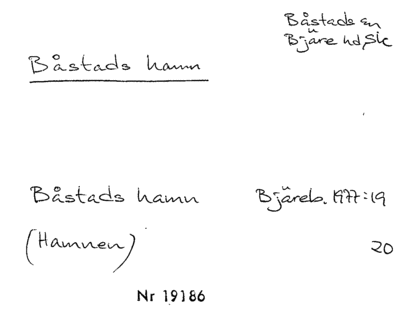 Båstads sn
Bjäre hd, Sk
Båstads hamn
Båstads hamn Bjäreb. 1977:19
(Hamnen) 20
Nr 19186